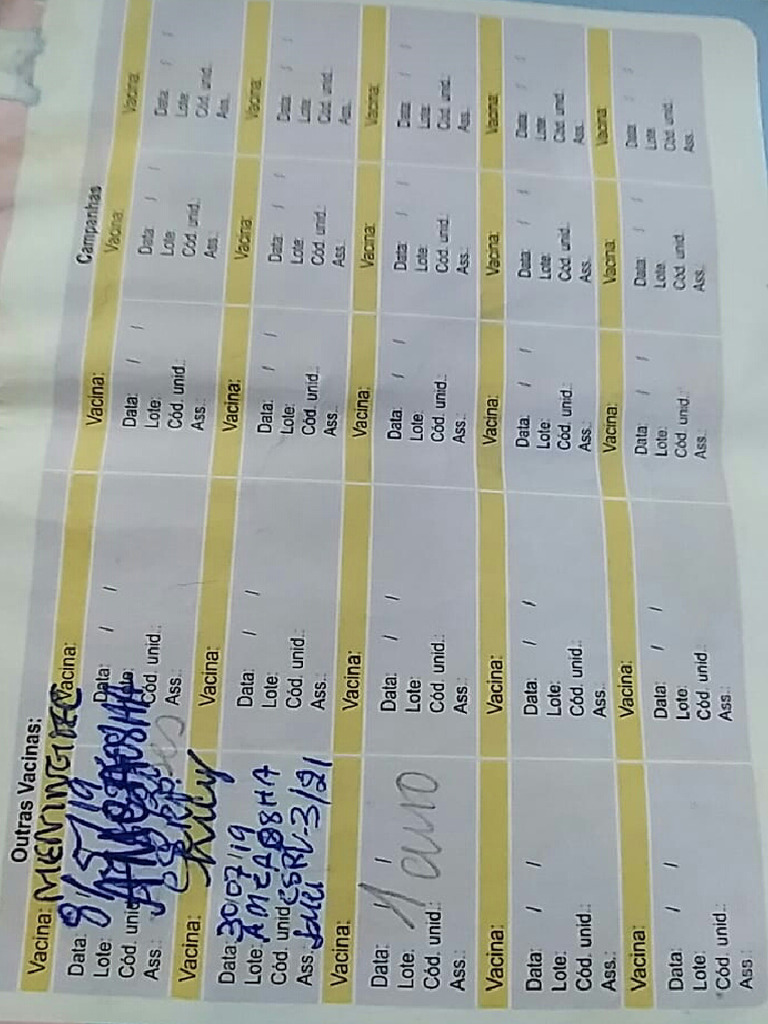 Outras Vacinas: Campanhas
Vacina: Vacina: Vacina: Vacina: Vacina:
Data: 8/5/19 Data: / / Data: / / Data: / / Data: / /
Lote: Lote: Lote: Lote: Lote:
Cód. unid Cód. unid.: Cód. unid.: Cód. unid.: Cód. unid.:
Ass.: Ass.: Ass.: Ass.: Ass.:
Vacina: Vacina: Vacina: Vacina: Vacina:
Data: 30/07/19 Data: / / Data: / / Data: / / Data: / /
Lote: AMCA08HA Lote: Lote: Lote: Lote:
Cód. unid Cód. unid.: Cód. unid.: Cód. unid.: Cód. unid.:
Ass.: Ass.: Ass.: Ass.: Ass.:
Vacina: Vacina: Vacina: Vacina: Vacina:
Data: Data: / / Data: / / Data: / / Data: / /
Lote: 1 ano Lote: Lote: Lote: Lote:
Cód. unid.: Cód. unid.: Cód. unid.: Cód. unid.: Cód. unid.:
Ass.: Ass.: Ass.: Ass.: Ass.:
Vacina: Vacina: Vacina: Vacina: Vacina:
Data: / / Data: / / Data: / / Data: / / Data: / /
Lote: Lote: Lote: Lote: Lote:
Cód. unid.: Cód. unid.: Cód. unid.: Cód. unid.: Cód. unid.:
Ass.: Ass.: Ass.: Ass.: Ass.:
Vacina: Vacina: Vacina: Vacina: Vacina:
Data: / / Data: / / Data: / / Data: / / Data: / /
Lote: Lote: Lote: Lote: Lote:
Cód. unid.: Cód. unid.: Cód. unid.: Cód. unid.: Cód. unid.:
Ass.: Ass.: Ass.: Ass.: Ass.: